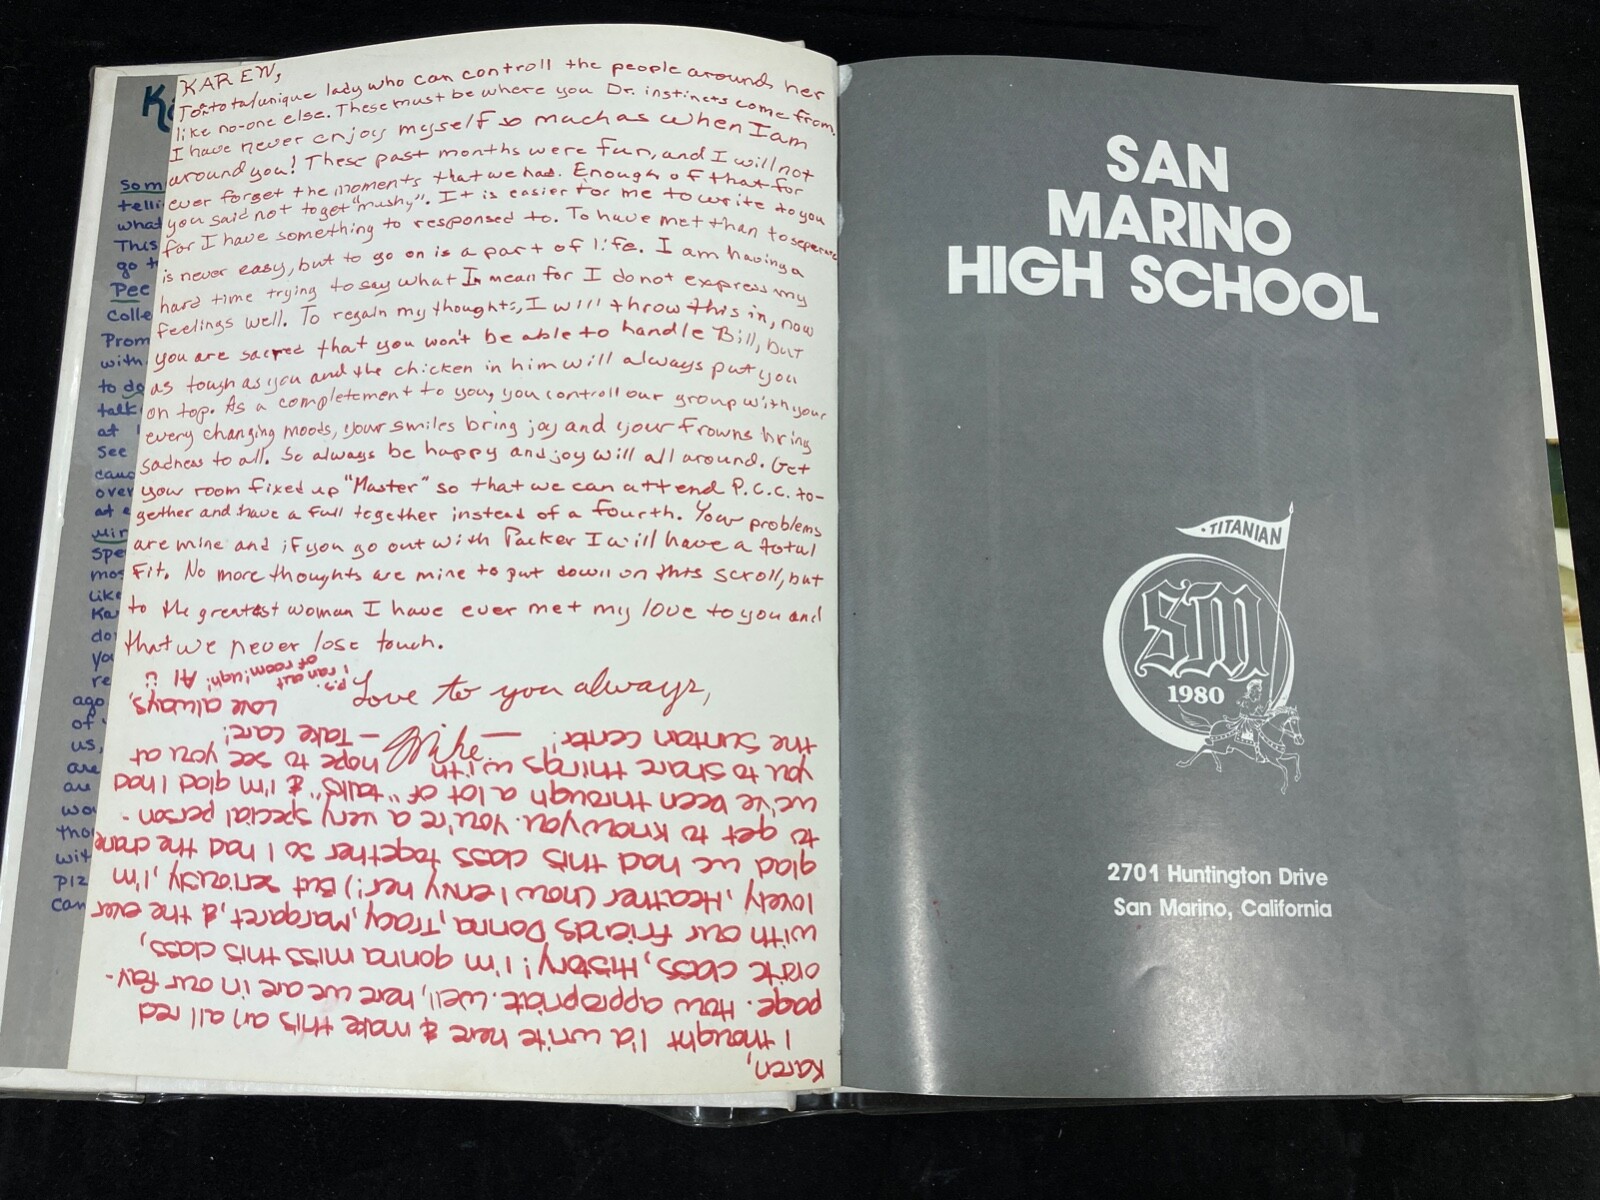 KAREN,
To a total unique lady who can controll the people around her
like no-one else. These must be where you Dr. instincts come from.
I have never enjoy myself so much as when I am
around you! These past months were fun, and I will not
ever forget the moments that we had. Enough of that for
you said not to get "mushy". It is easier for me to write to you
for I have something to responsed to. To have met than to seperate
is never easy, but to go on is a part of life. I am having a
hard time trying to say what I mean for I do not express my
feelings well. To regain my thoughts, I will throw this in, now
you are sacred that you won't be able to handle Bill, but
as tough as you and the chicken in him will always put you
on top. As a completement to you, you controll our group with your
every changing moods, your smiles bring joy and your frowns bring
sadness to all. So always be happy and joy will all around. Get
your room fixed up "Master" so that we can attend P.C.C. to-
gether and have a full together instead of a fourth. Your problems
are mine and if you go out with Packer I will have a total
Fit. No more thoughts are mine to put down on this scroll, but
to the greatest woman I have ever met my love to you and
that we never lose touch.
Love to you always,
Mike
Karen,
I thought I'd write here & make this an all red
page. How appropriate. Well, here we are in our fav-
orite class, History! I'm gonna miss this class,
with our friends Donna, Tracy, Margaret, & the ever
lovely, Heather (how I envy her!) But seriously, I'm
glad we had this class together so I had the chance
to get to know you. You're a very special person -
we've been through a lot of "talks" & I'm glad I had
you to share things with. hope to see you at
the Suntan Center! - Take care!
Love always,
Al
P.S. I ran out
of room! ugh!
Som
telli
what
This
go t
Pee
Colle
Prom
with
to do
talk
at
See
over
at
Spe
mos
like
Ka
do
yo
re
ago
of
us,
are
wo
tho
wit
piz
can
SAN
MARINO
HIGH SCHOOL
TITANIAN
SM
1980
2701 Huntington Drive
San Marino, California